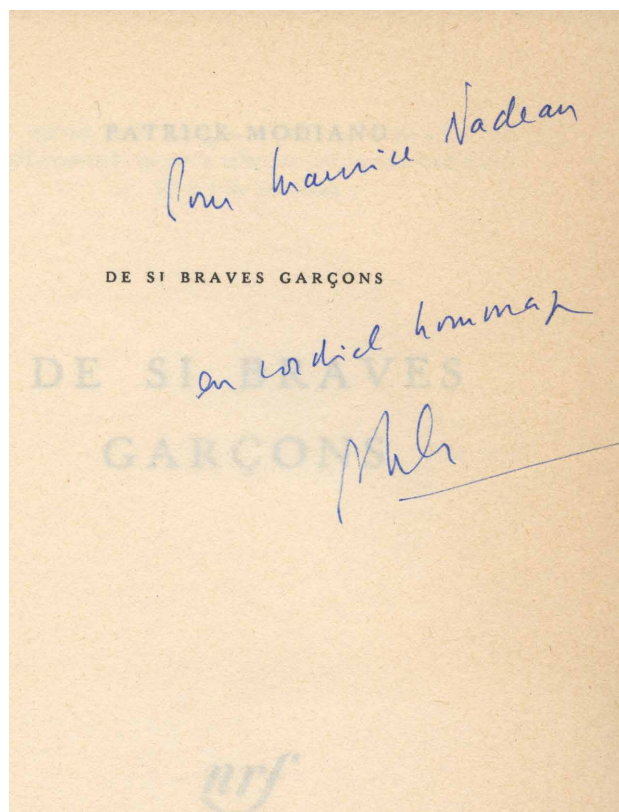 PATRICK MODIANO
Pour Maurice Nadeau
DE SI BRAVES GARÇONS
en cordial hommage
DE SI BRAVES
GARÇONS
nrf